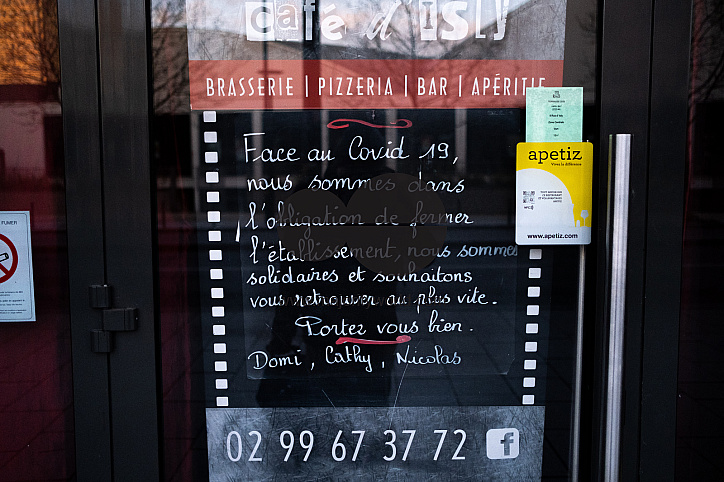 Café d'ISLY
BRASSERIE | PIZZERIA | BAR | APÉRITIF
Face au Covid 19,
nous sommes dans
l'obligation de fermer
l'établissement, nous sommes
solidaires et souhaitons
vous retrouver au plus vite.
Portez vous bien.
Domi, Cathy, Nicolas
02 99 67 37 72
f
apetiz
www.apetiz.com
FUMER